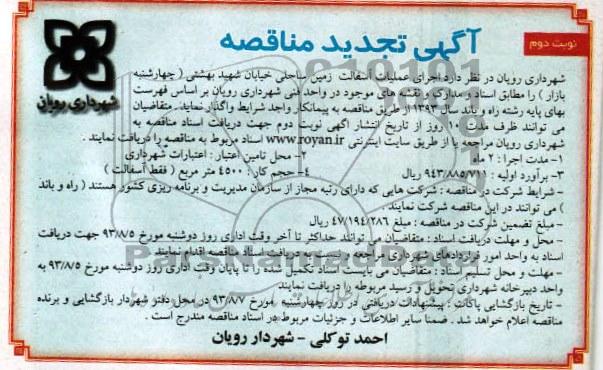 نوبت دوم
آگهی تجدید مناقصه
شهرداری رویان
شهرداری رویان در نظر دارد اجرای عملیات آسفالت زمین ساحلی خیابان شهید بهشتی ( چهارشنبه
بازار ) را مطابق اسناد و مدارک و نقشه های موجود در واحد فنی شهرداری رویان بر اساس فهرست
بهای پایه رشته راه و باند سال ۱۳۹۳ از طریق مناقصه به پیمانکار واجد شرایط واگذار نماید. متقاضیان
می توانند ظرف مدت ۱۰ روز از تاریخ انتشار آگهی نوبت دوم جهت دریافت اسناد مناقصه به
شهرداری رویان مراجعه یا از طریق سایت اینترنتی www.royan.ir اسناد مربوط به مناقصه را دریافت نمایند .
۱- مدت اجرا : ۲ ماه ۲- محل تامین اعتبار : اعتبارات شهرداری
۳- برآورد اولیه : ۹۴۳/۸۸۵/۷۱۰ ریال ۴- حجم کار : ۴۵۰۰ متر مربع ( فقط آسفالت )
- شرایط شرکت در مناقصه : شرکت هایی که دارای رتبه مجاز از سازمان مدیریت و برنامه ریزی کشور هستند ( راه و باند
) می توانند در این مناقصه شرکت نمایند .
- مبلغ تضمین شرکت در مناقصه : مبلغ ۴۷/۱۹۴/۲۸۶ ریال
- محل و مهلت دریافت اسناد : متقاضیان می توانند حداکثر تا آخر وقت اداری روز دوشنبه مورخ ۹۳/۸/۵ جهت دریافت
اسناد به واحد امور قراردادهای شهرداری مراجعه و نسبت به دریافت اسناد مناقصه اقدام نمایند
- مهلت و محل تسلیم اسناد : متقاضیان می بایست اسناد تکمیل شده را تا پایان وقت اداری روز دوشنبه مورخ ۹۳/۸/۵ به
واحد دبیرخانه شهرداری تحویل و رسید مربوطه را دریافت نمایند
- تاریخ بازگشایی پاکات : پیشنهادات دریافتی در روز چهارشنبه مورخ ۹۳/۸/۷ در محل دفتر شهردار بازگشایی و برنده
مناقصه اعلام خواهد شد . ضمنا سایر اطلاعات و جزئیات مربوط در اسناد مناقصه مندرج است .
احمد توکلی - شهردار رویان